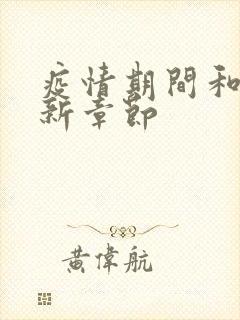 疫情期間和
新章節
黃偉航